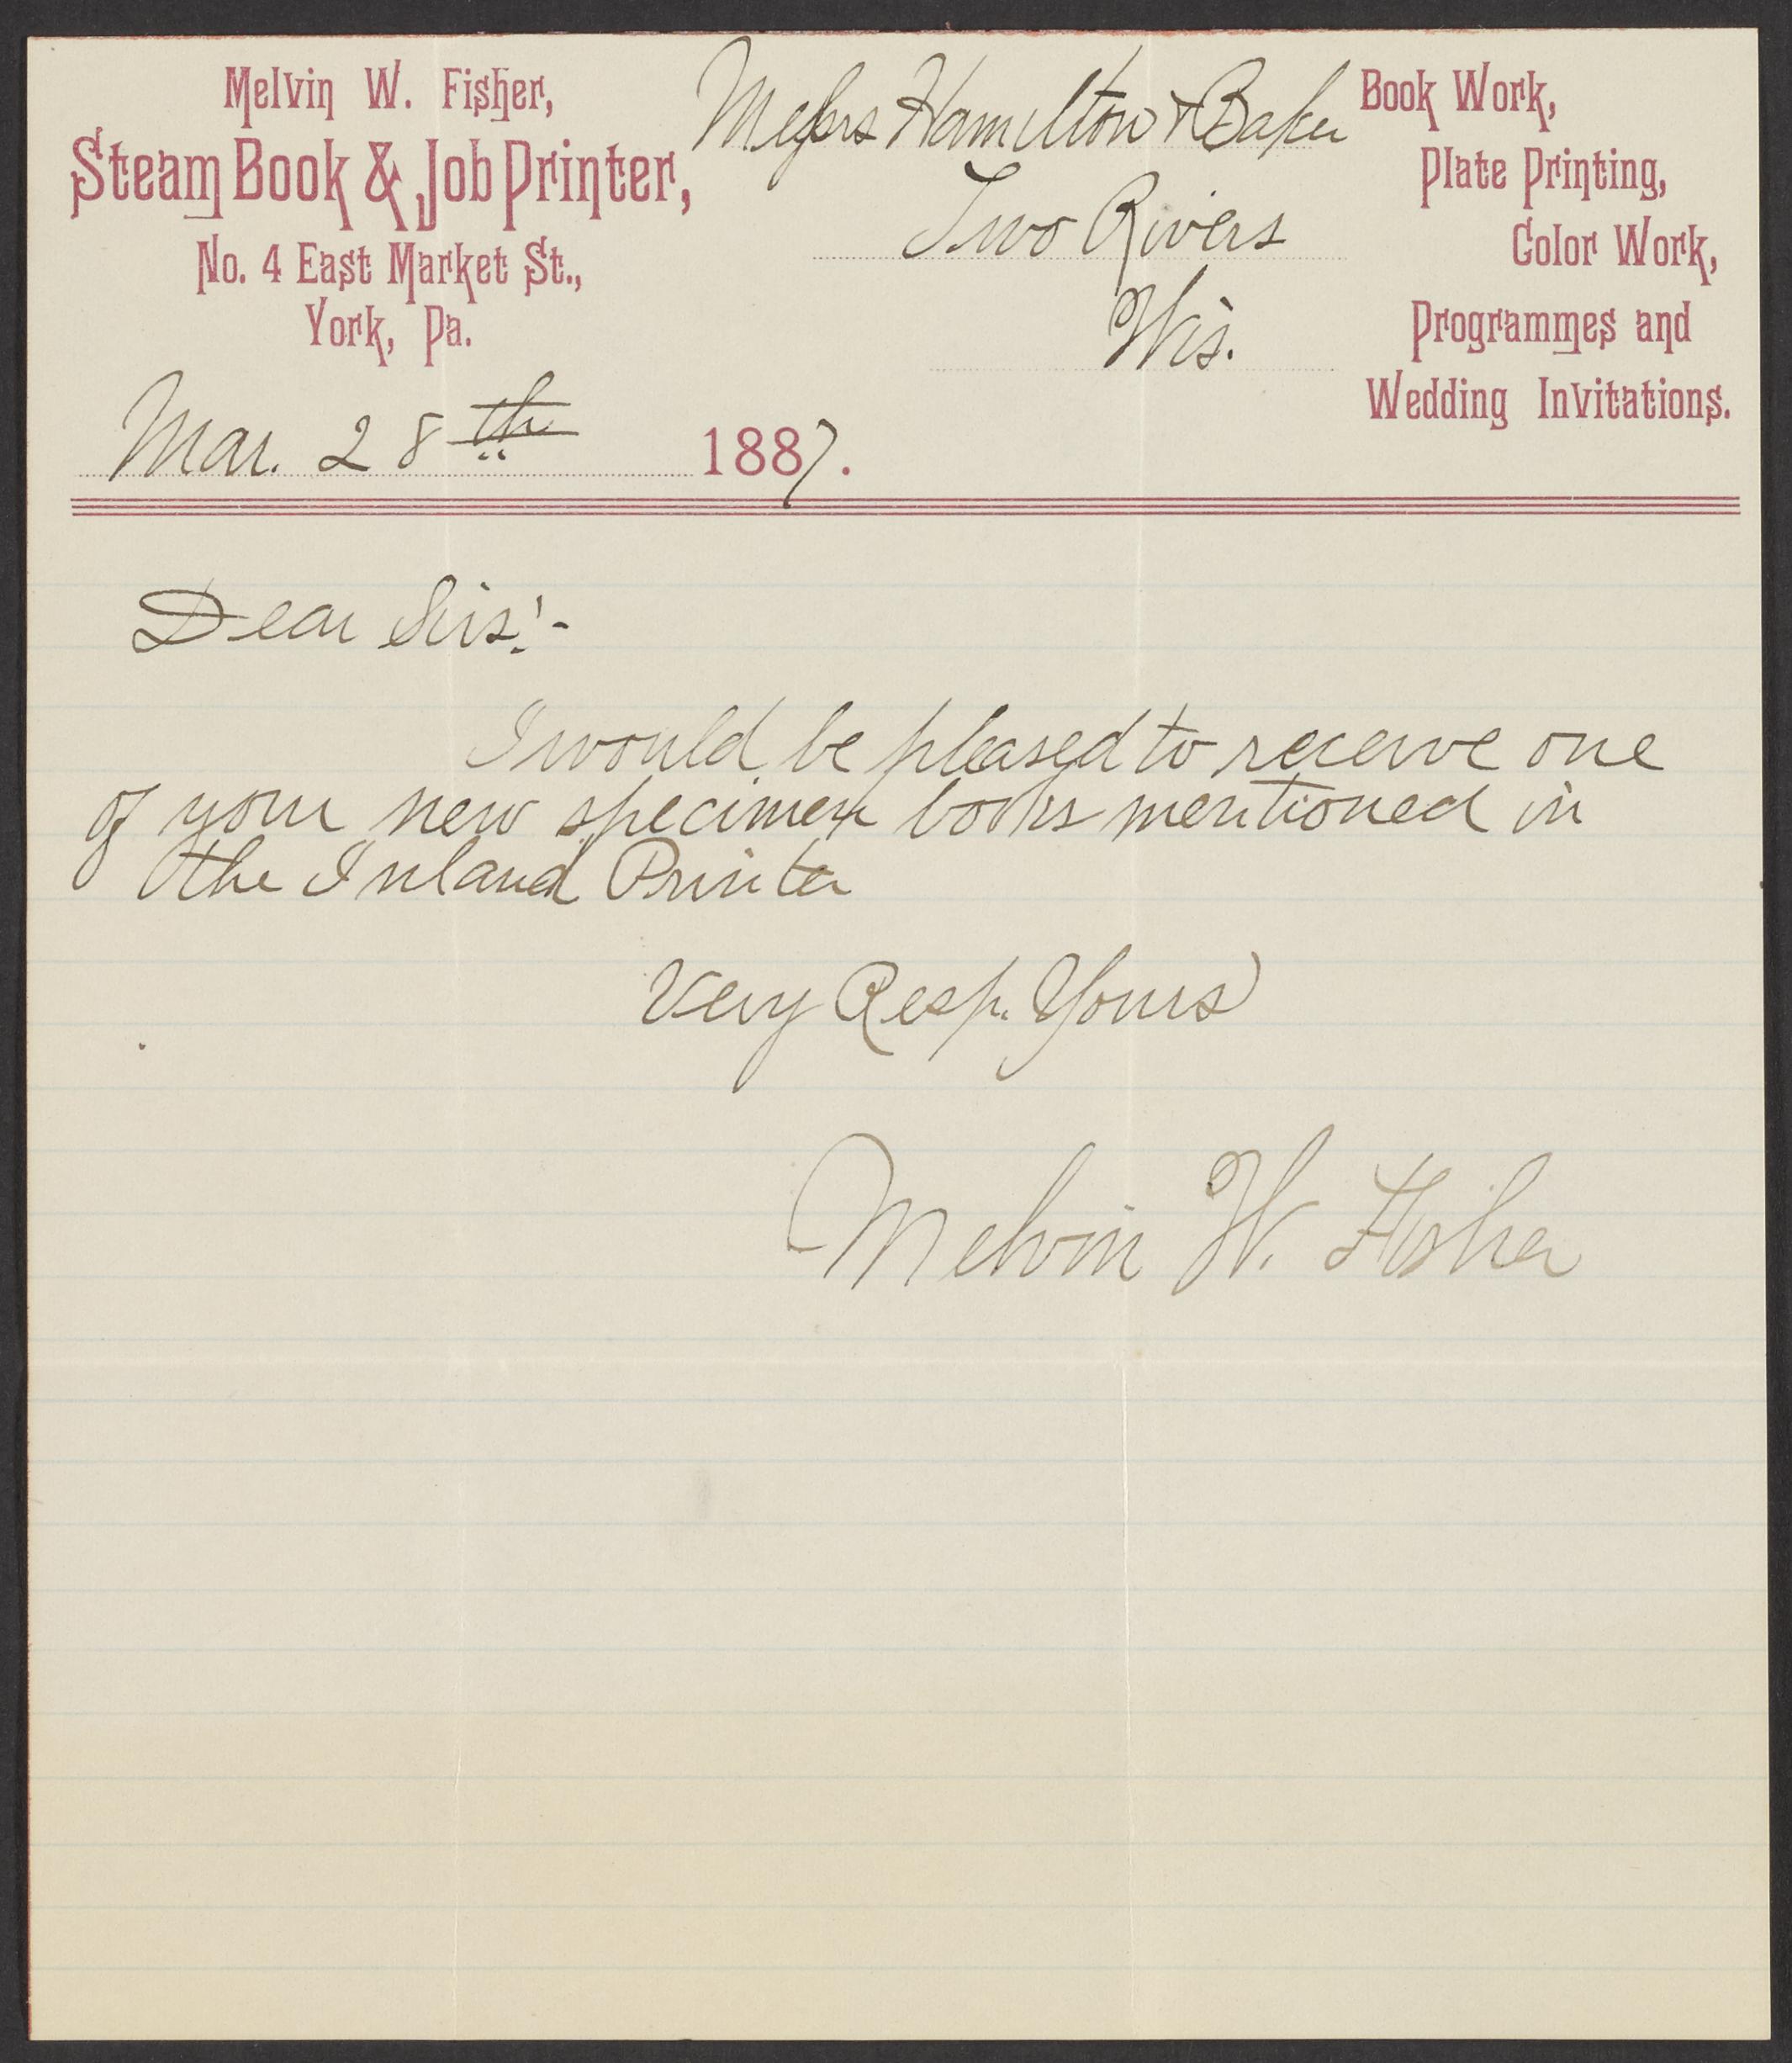 Melvin W. Fisher,
Steam Book & Job Printer,
No. 4 East Market St.,
York, Pa.
Messrs Hamilton & Baker
Two Rivers
Wis.
Book Work,
Plate Printing,
Color Work,
Programmes and
Wedding Invitations.
Mar. 28th 1887.
Dear Sirs:-
I would be pleased to receive one
of your new specimen books mentioned in
the Inland Printer
Very Resp. Yours
Melvin W. Fisher